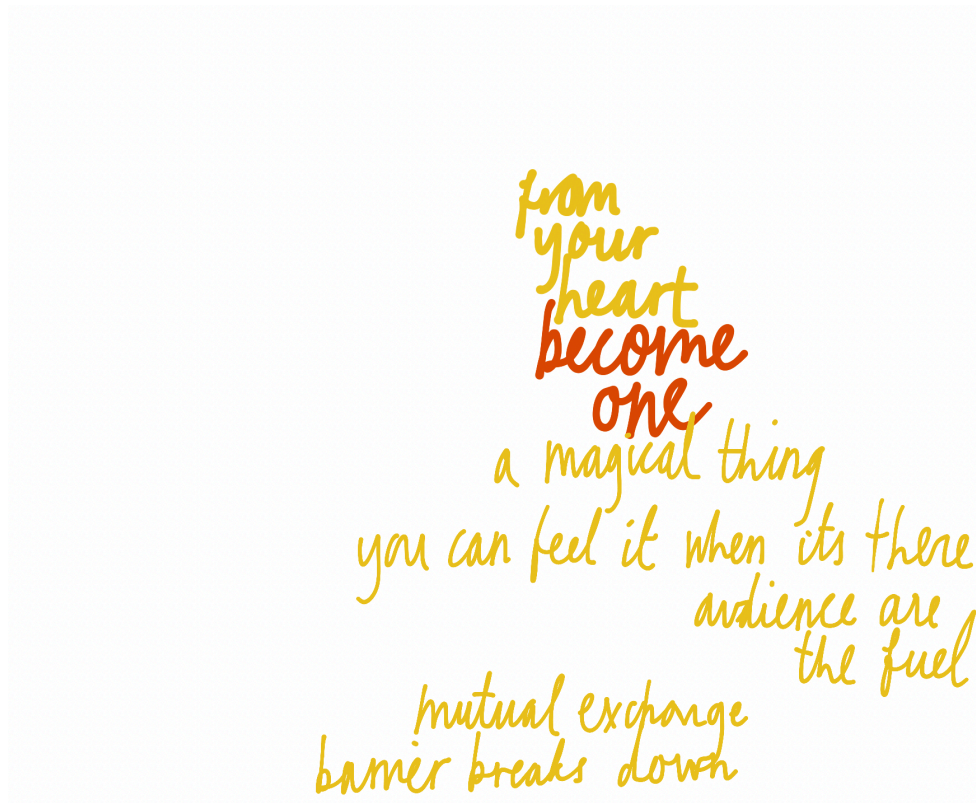 from
your
heart
become
one
a magical thing
you can feel it when its there
audience are
the fuel
mutual exchange
barrier breaks down